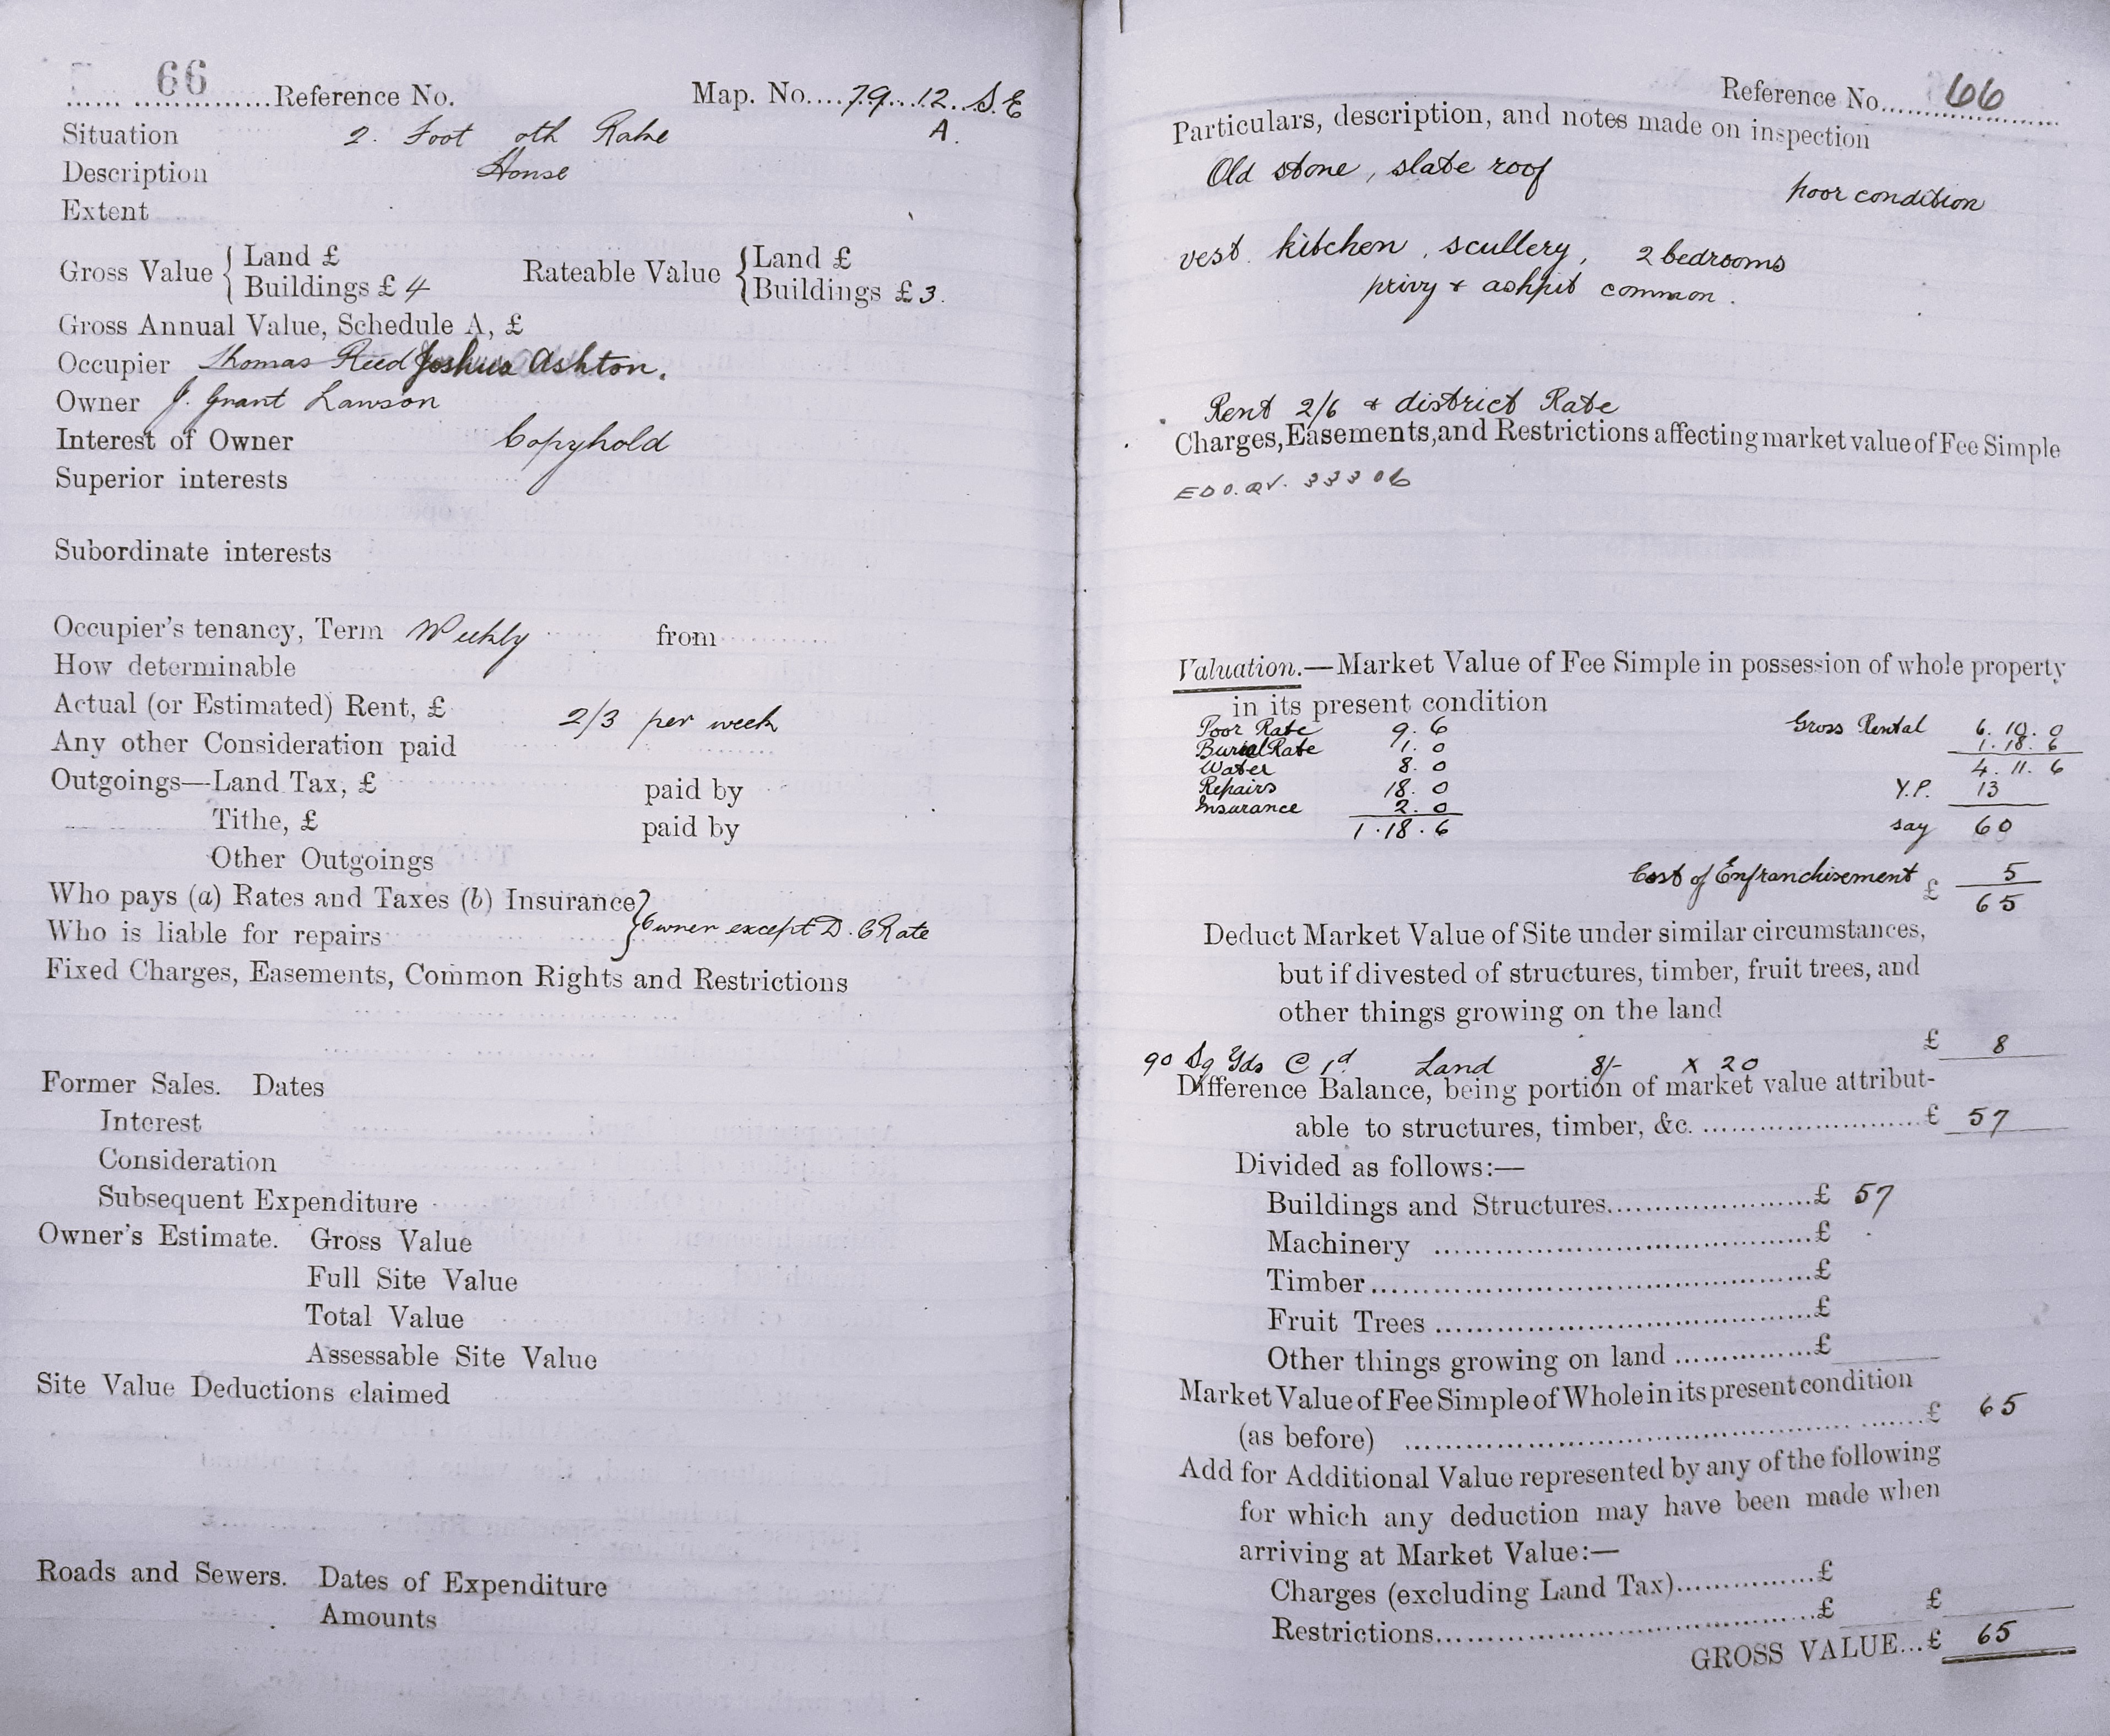 66 Reference No. Map. No. 79. 12. S.E
A.
Situation 2. Foot oth Rake
Description House
Extent
Gross Value { Land £
Buildings £ 4
Rateable Value { Land £
Buildings £ 3.
Gross Annual Value, Schedule A, £
Occupier Thomas Reed Joshua Ashton.
Owner J. Grant Lawson
Interest of Owner Copyhold
Superior interests
Subordinate interests
Occupier's tenancy, Term Weekly from
How determinable
Actual (or Estimated) Rent, £ 2/3 per week
Any other Consideration paid
Outgoings—Land Tax, £ paid by
Tithe, £ paid by
Other Outgoings
Who pays (a) Rates and Taxes (b) Insurance }
Who is liable for repairs } Owner except D. C Rate
Fixed Charges, Easements, Common Rights and Restrictions
Former Sales. Dates
Interest
Consideration
Subsequent Expenditure
Owner's Estimate. Gross Value
Full Site Value
Total Value
Assessable Site Value
Site Value Deductions claimed
Roads and Sewers. Dates of Expenditure
Amounts
Reference No. 66
Particulars, description, and notes made on inspection
Old stone, slate roof poor condition
vest. kitchen, scullery, 2 bedrooms
privy & ashpit common.
Rent 2/6 & district Rate
Charges, Easements, and Restrictions affecting market value of Fee Simple
33306
Valuation.—Market Value of Fee Simple in possession of whole property
in its present condition
Poor Rate 9. 6 Gross Rental 6. 10. 0
Burial Rate 1. 0 1. 18. 6
Water 8. 0 4. 11. 6
Repairs 18. 0 Y.P. 13
Insurance 2. 0
1. 18. 6 say 60
Cost of Enfranchisement 5
£ 65
Deduct Market Value of Site under similar circumstances,
but if divested of structures, timber, fruit trees, and
other things growing on the land
£ 8
90 Sq Yds @ 1d Land 8/- x 20
Difference Balance, being portion of market value attribut-
able to structures, timber, &c. £ 57
Divided as follows:—
Buildings and Structures £ 57
Machinery £
Timber £
Fruit Trees £
Other things growing on land £
Market Value of Fee Simple of Whole in its present condition
(as before) £ 65
Add for Additional Value represented by any of the following
for which any deduction may have been made when
arriving at Market Value:—
Charges (excluding Land Tax) £
Restrictions £ £
GROSS VALUE... £ 65